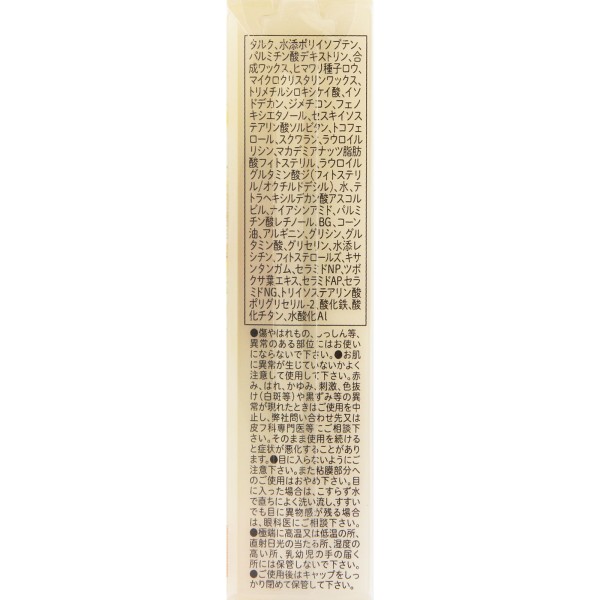 タルク、水添ポリイソブテン、
パルミチン酸デキストリン、合
成ワックス、ヒマワリ種子ロウ、
マイクロクリスタリンワックス、
トリメチルシロキシケイ酸、イソ
ドデカン、ジメチコン、フェノ
キシエタノール、セスキイソス
テアリン酸ソルビタン、トコフェ
ロール、スクワラン、ラウロイル
リシン、マカデミアナッツ脂肪
酸フィトステリル、ラウロイル
グルタミン酸ジ(フィトステリ
ル/オクチルドデシル)、水、テ
トラヘキシルデカン酸アスコル
ビル、ナイアシンアミド、パルミ
チン酸レチノール、BG、コーン
油、アルギニン、グリシン、グル
タミン酸、グリセリン、水添レ
シチン、フィトステロールズ、キサ
ンタンガム、セラミドNP、ツボ
クサ葉エキス、セラミドAP、セラ
ミドNG、トリイソステアリン酸
ポリグリセリル-2、酸化鉄、酸
化チタン、水酸化Al
●傷やはれもの、しっしん等、
異常のある部位にはお使い
にならないで下さい。●お肌
に異常が生じていないかよく
注意して使用して下さい。赤
み、はれ、かゆみ、刺激、色抜
け(白斑等)や黒ずみ等の異
常が現れたときはご使用を中
止し、弊社問い合わせ先又は
皮フ科専門医等にご相談下
さい。そのまま使用を続ける
と症状が悪化することがあり
ます。●目に入らないようにご
注意下さい。また粘膜部分へ
のご使用はおやめ下さい。目
に入った場合は、こすらず水
で直ちによく洗い流し、すすい
でも目に異物感が残る場合
は、眼科医にご相談下さい。
●極端に高温又は低温の所、
直射日光の当たる所、湿度の
高い所、乳幼児の手の届く
所には保管しないで下さい。
●ご使用後はキャップをしっ
かり閉めて保管して下さい。